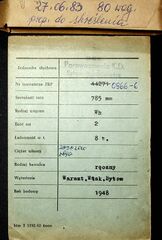 27.06.83 80 wag.
prep. do skreślenia
Jednostka służbowa
Nr inwentarza PKP 44271 0866-6
Szerokość toru 785 mm
Rodzaj wagonu Wh
Ilość osi 2
Ładowność w t. 8 t.
Ciężar własny
Rodzaj hamulca ręczny
Wytwórnia Warszt.Wąsk.Bytom
Rok budowy 1948